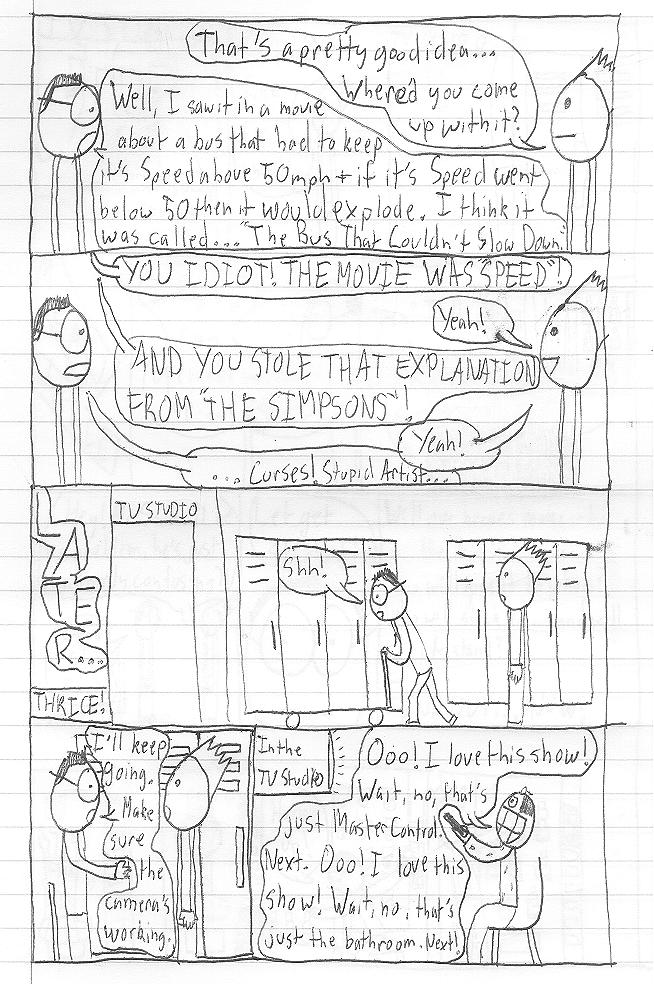 That's a pretty good idea...
Where'd you come
up with it?
Well, I saw it in a movie
about a bus that had to keep
it's Speed above 50mph + if it's Speed went
below 50 then it would explode. I think it
was called...."The Bus That Couldn't Slow Down."
YOU IDIOT! THE MOVIE WAS "SPEED"!
Yeah!
AND YOU STOLE THAT EXPLANATION
FROM "THE SIMPSONS"!
Yeah!
... Curses! Stupid Artist....
LATER...
THRICE!
TV STUDIO
Shh!
I'll keep
going.
Make
sure
the
camera's
working.
In the
TV Studio
Ooo! I love this show!
Wait, no, that's
just Master Control.
Next. Ooo! I love this
show! Wait, no, that's
just the bathroom. Next!